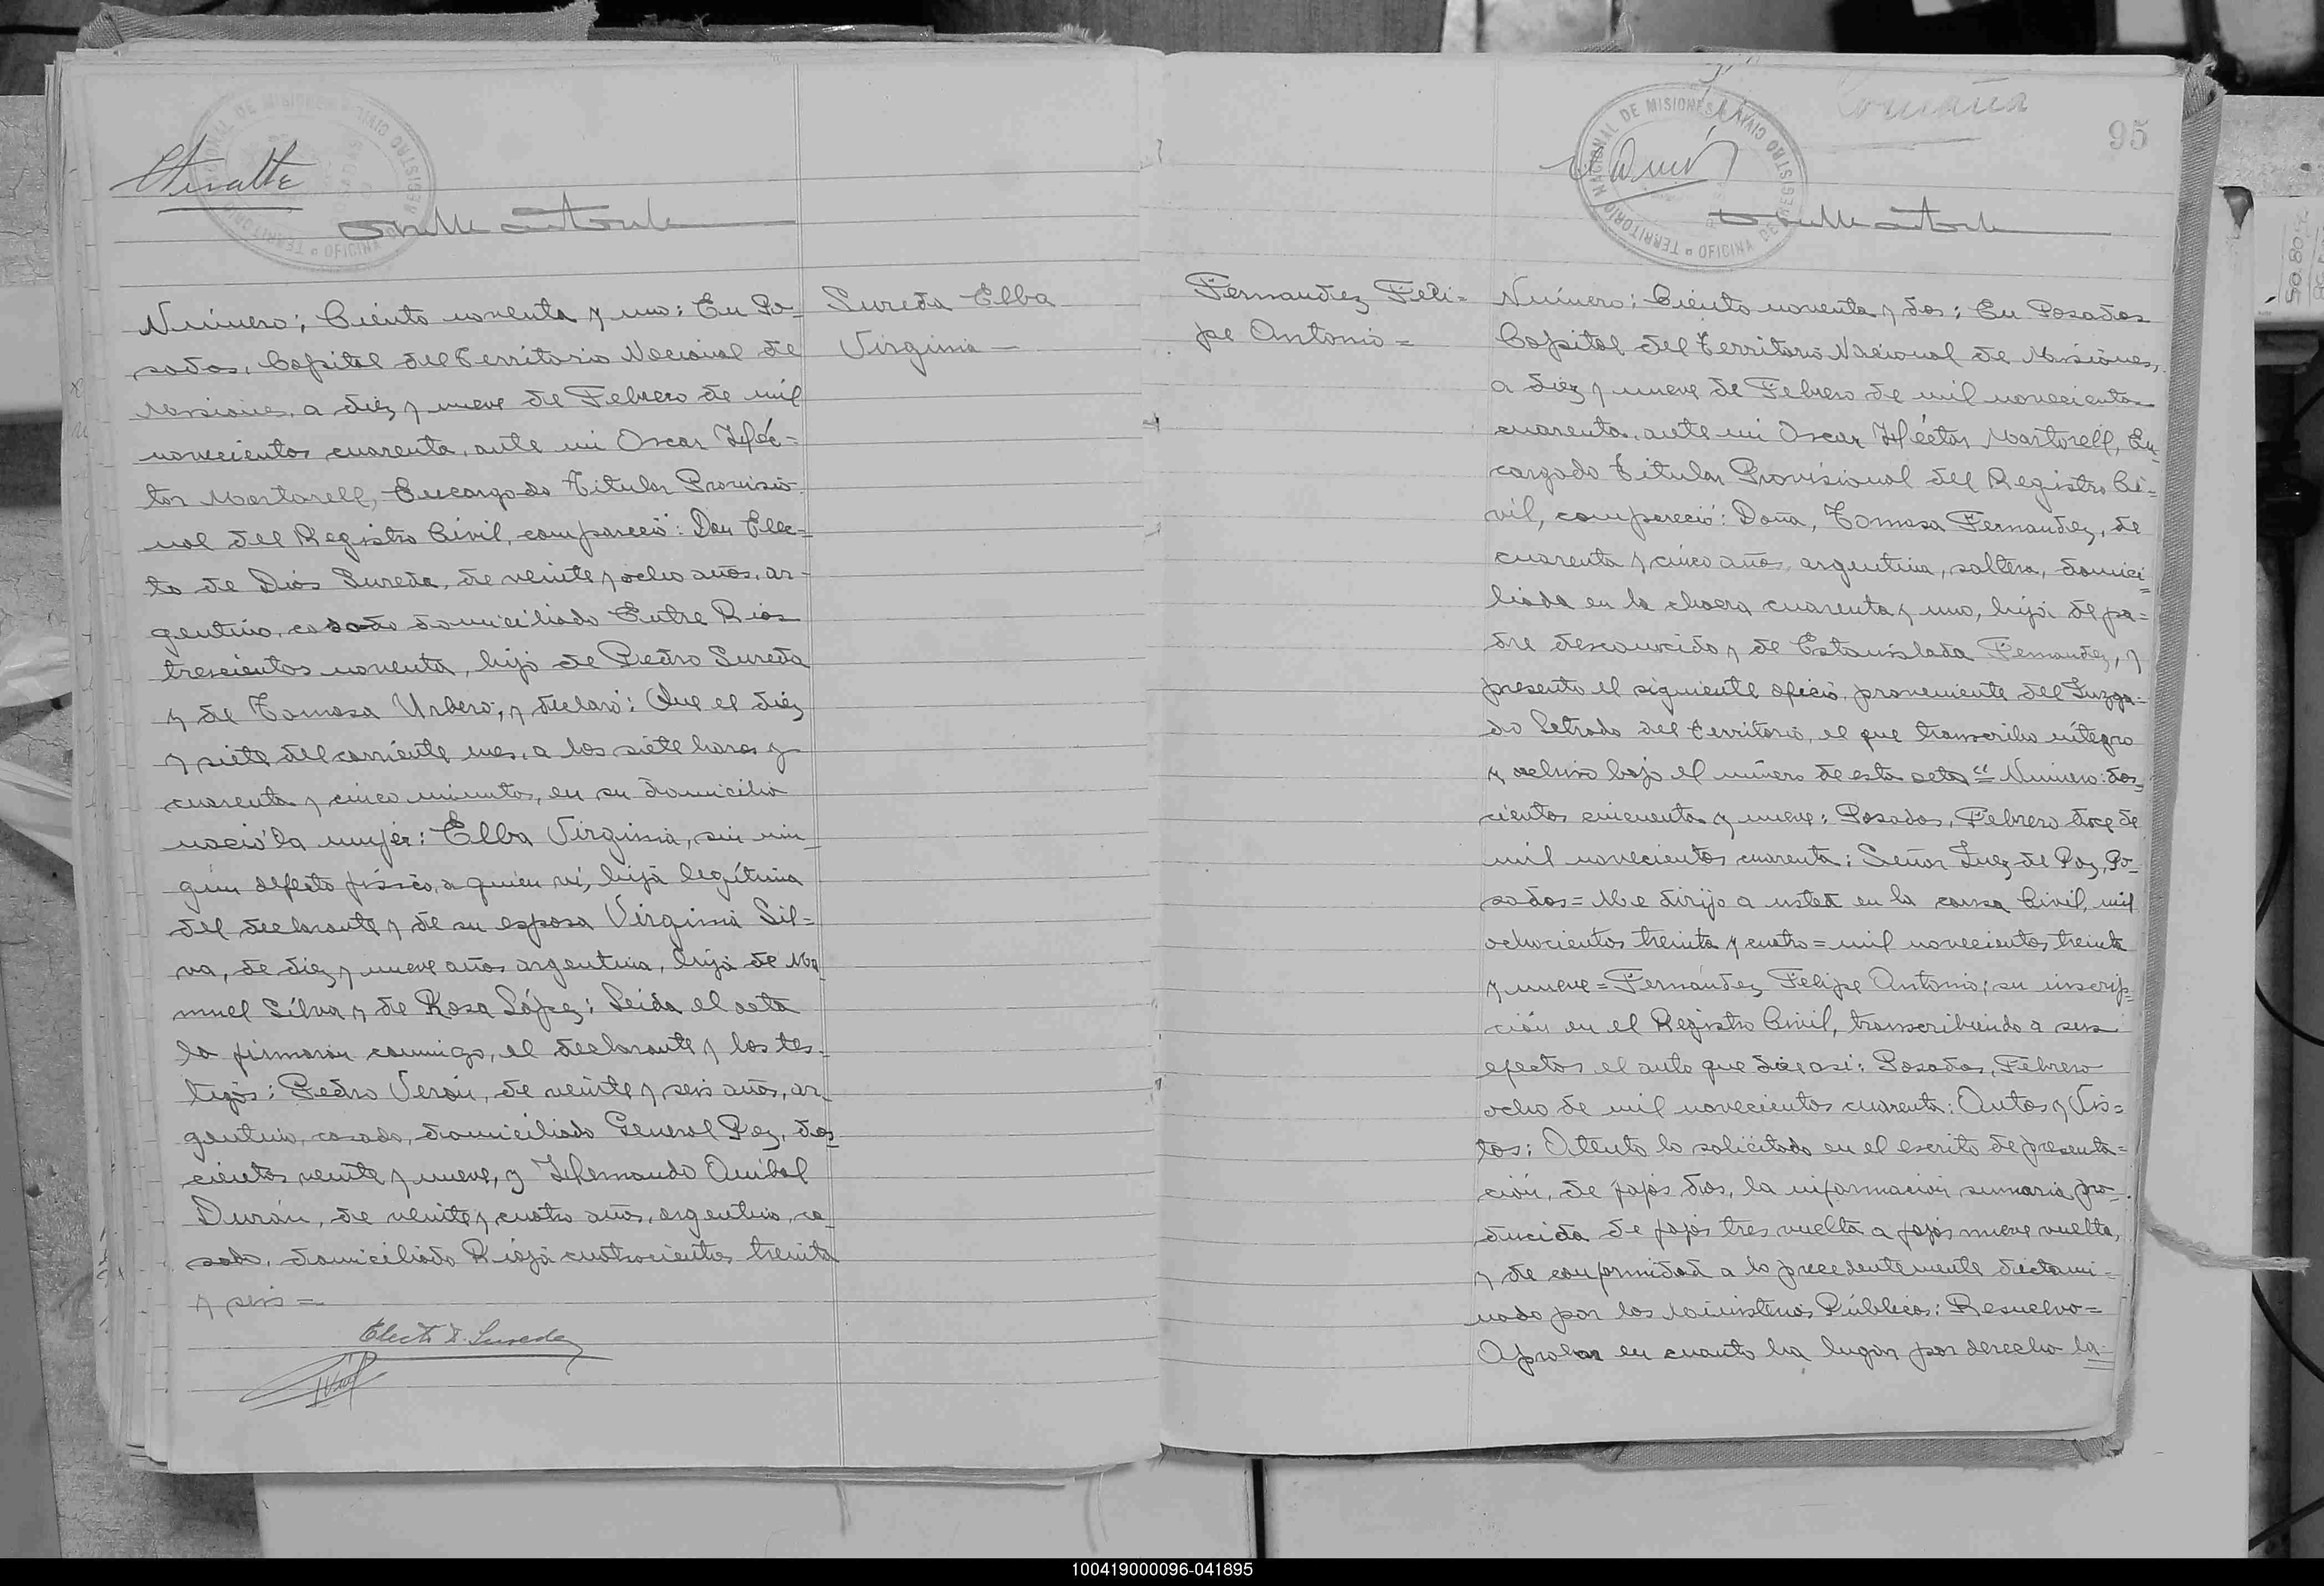 TERRITORIO NACIONAL DE MISIONES
OFICINA DE REGISTRO CIVIL
Número: Ciento noventa y uno: En Po-
sadas, Capital del Territorio Nacional de
Misiones, a diez y nueve de Febrero de mil
novecientos cuarenta, ante mi Oscar Héc=
tor Martorell, Encargado Titular Provisio-
nal del Registro Civil, compareció: Don Elec=
to de Dios Sureda, de veinte y ocho años, ar-
gentino, casado domiciliado Entre Rios
trescientos noventa, hijo de Pedro Sureda
y de Tomasa Urbero, y declaró: Que el diez
y siete del corriente mes, a las siete horas y
cuarenta y cinco minutos, en su domicilio
nació la mujer: Elba Virginia, sin nin-
gún defecto físico, a quien vi, hija legítima
del declarante y de su esposa Virginia Sil=
va, de diez y nueve años argentina, hija de Ma-
nuel Silva y de Rosa López: Leida el acta
la firmaron conmigo, el declarante y los tes-
tigos: Pedro Verón, de veinte y seis años, ar-
gentino, casado, domiciliado General Paz, dos-
cientos veinte y nueve, y Hernando Anibal
Durán, de veinte y cuatro años, argentino, ca-
sado, domiciliado Rioja cuatrocientos treinta
y seis =
Electo D. Sureda
Sureda Elba
Virginia —
95
TERRITORIO NACIONAL DE MISIONES
OFICINA DE REGISTRO CIVIL
Fernandez Feli=
pe Antonio =
Número: Ciento noventa y dos: En Posadas
Capital del Territorio Nacional de Misiones,
a diez y nueve de Febrero de mil novecientos
cuarenta, ante mi Oscar Héctor Martorell, En-
cargado Titular Provisional del Registro Ci=
vil, compareció: Doña, Tomasa Fernandez, de
cuarenta y cinco años argentina, soltera, domici=
liada en la chacra cuarenta y uno, hija de pa=
dre desconocido y de Estanislada Fernandez, y
presento el siguiente oficio proveniente del Juzga-
do Letrado del Territorio, el que transcribo integro
y archivo bajo el número de esta acta "= Número: dos-
cientos cincuenta y nueve: Posadas, Febrero doce de
mil novecientos cuarenta: Señor Juez de Paz, Po-
sadas = Me dirijo a usted en la causa Civil, mil
ochocientos treinta y cuatro = mil novecientos treinta
y nueve = Fernández Felipe Antonio; su inscrip-
ción en el Registro Civil, transcribiendo a sus
efectos el auto que dice asi: Posadas, Febrero
ocho de mil novecientos cuarenta: Autos y Vis=
tos: Atento lo solicitado en el escrito de presenta=
ción, de fojas dos, la información sumaria pro-
ducida de fojas tres vuelta a fojas nueve vuelta,
y de conformidad a lo precedentemente dictami=
nado por los Ministerios Públicos: Resuelvo =
Aprobar en cuanto ha lugar por derecho la
100419000096-041895